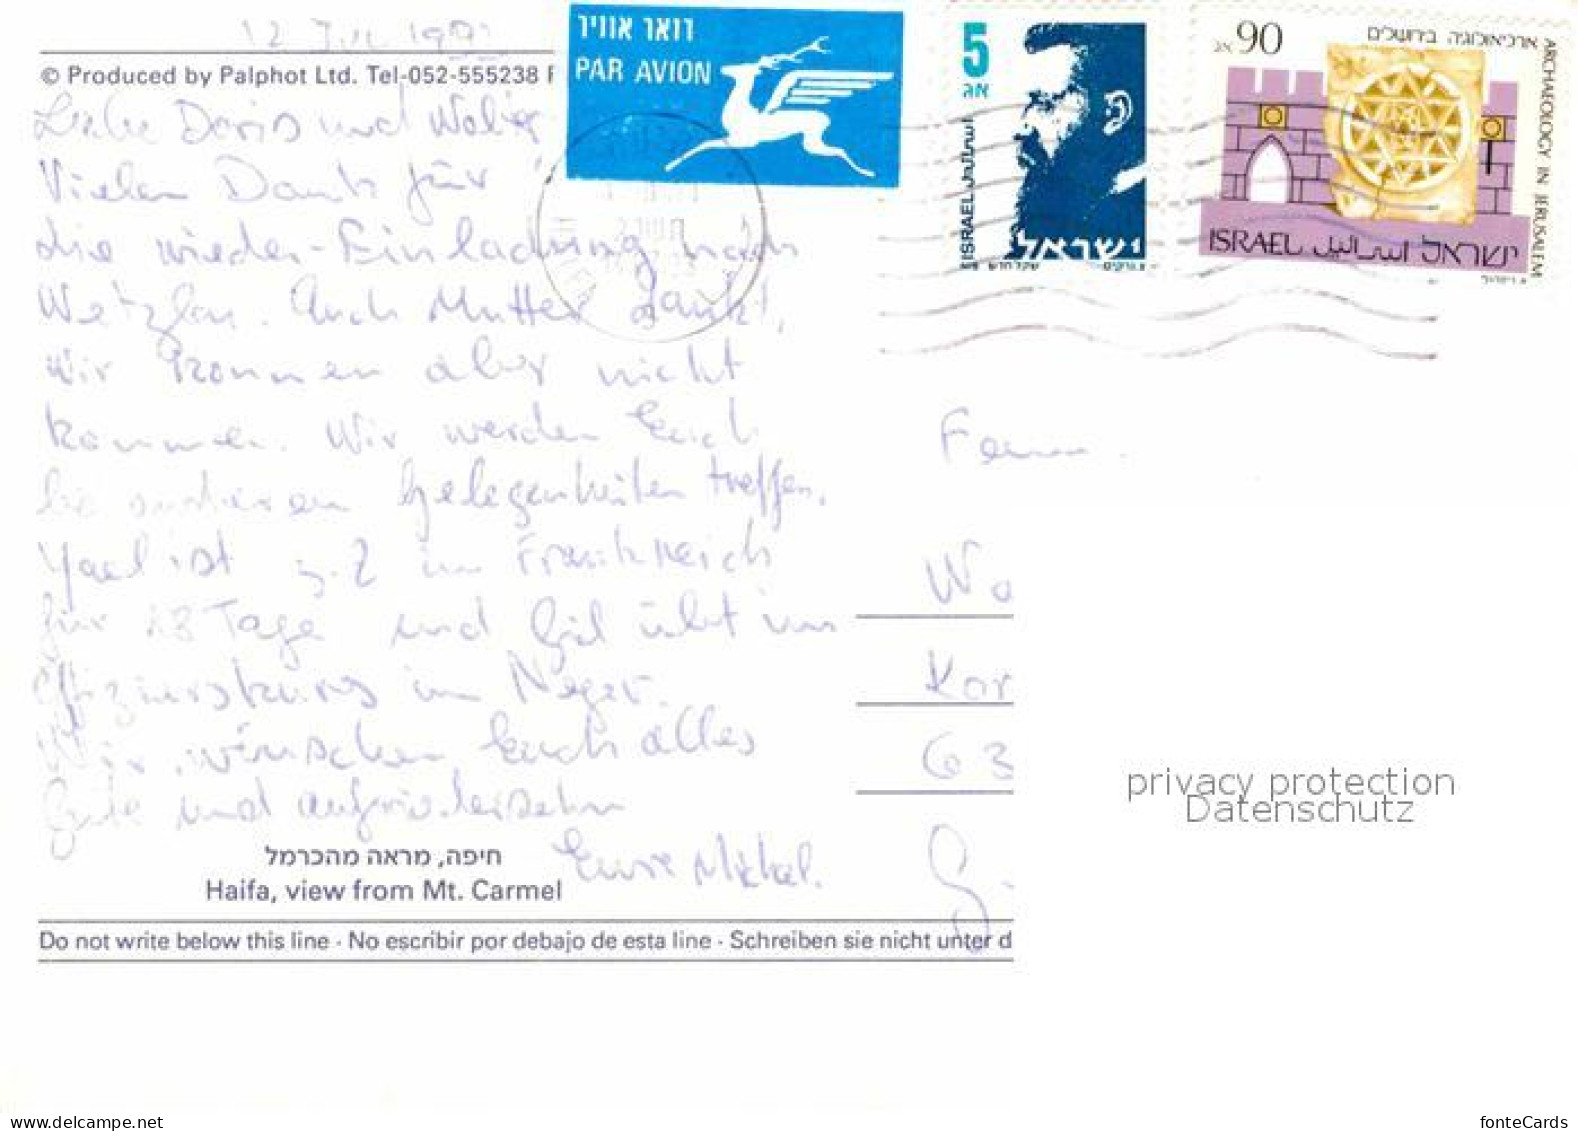 12 JUL 199
© Produced by Palphot Ltd. Tel-052-555238
דואר אוויר
PAR AVION
5
אג
ISRAEL اسرائيل
ישראל
שקל חדש
90 אג
ארכיאולוגיה בירושלים
ARCHAEOLOGY IN JERUSALEM
ISRAEL اسرائيل ישראל
Liebe Doris und Walter
Vielen Dank für
die wieder-Einladung nach
Wetzlar. Auch Mutter dankt,
wir können aber nicht
kommen. Wir werden Euch
bei anderen Gelegenheiten treffen.
Yael ist z.Z in Frankreich
für 18 Tage und Gil übt im
Offizierskurs im Negev.
Wir wünschen Euch alles
Gute und aufwiedersehn
Eure Michal.
Fam.
Wa
Kor
63
חיפה, מראה מהכרמל
Haifa, view from Mt. Carmel
Do not write below this line · No escribir por debajo de esta line · Schreiben sie nicht unter d
privacy protection
Datenschutz
www.delcampe.net
fonteCards